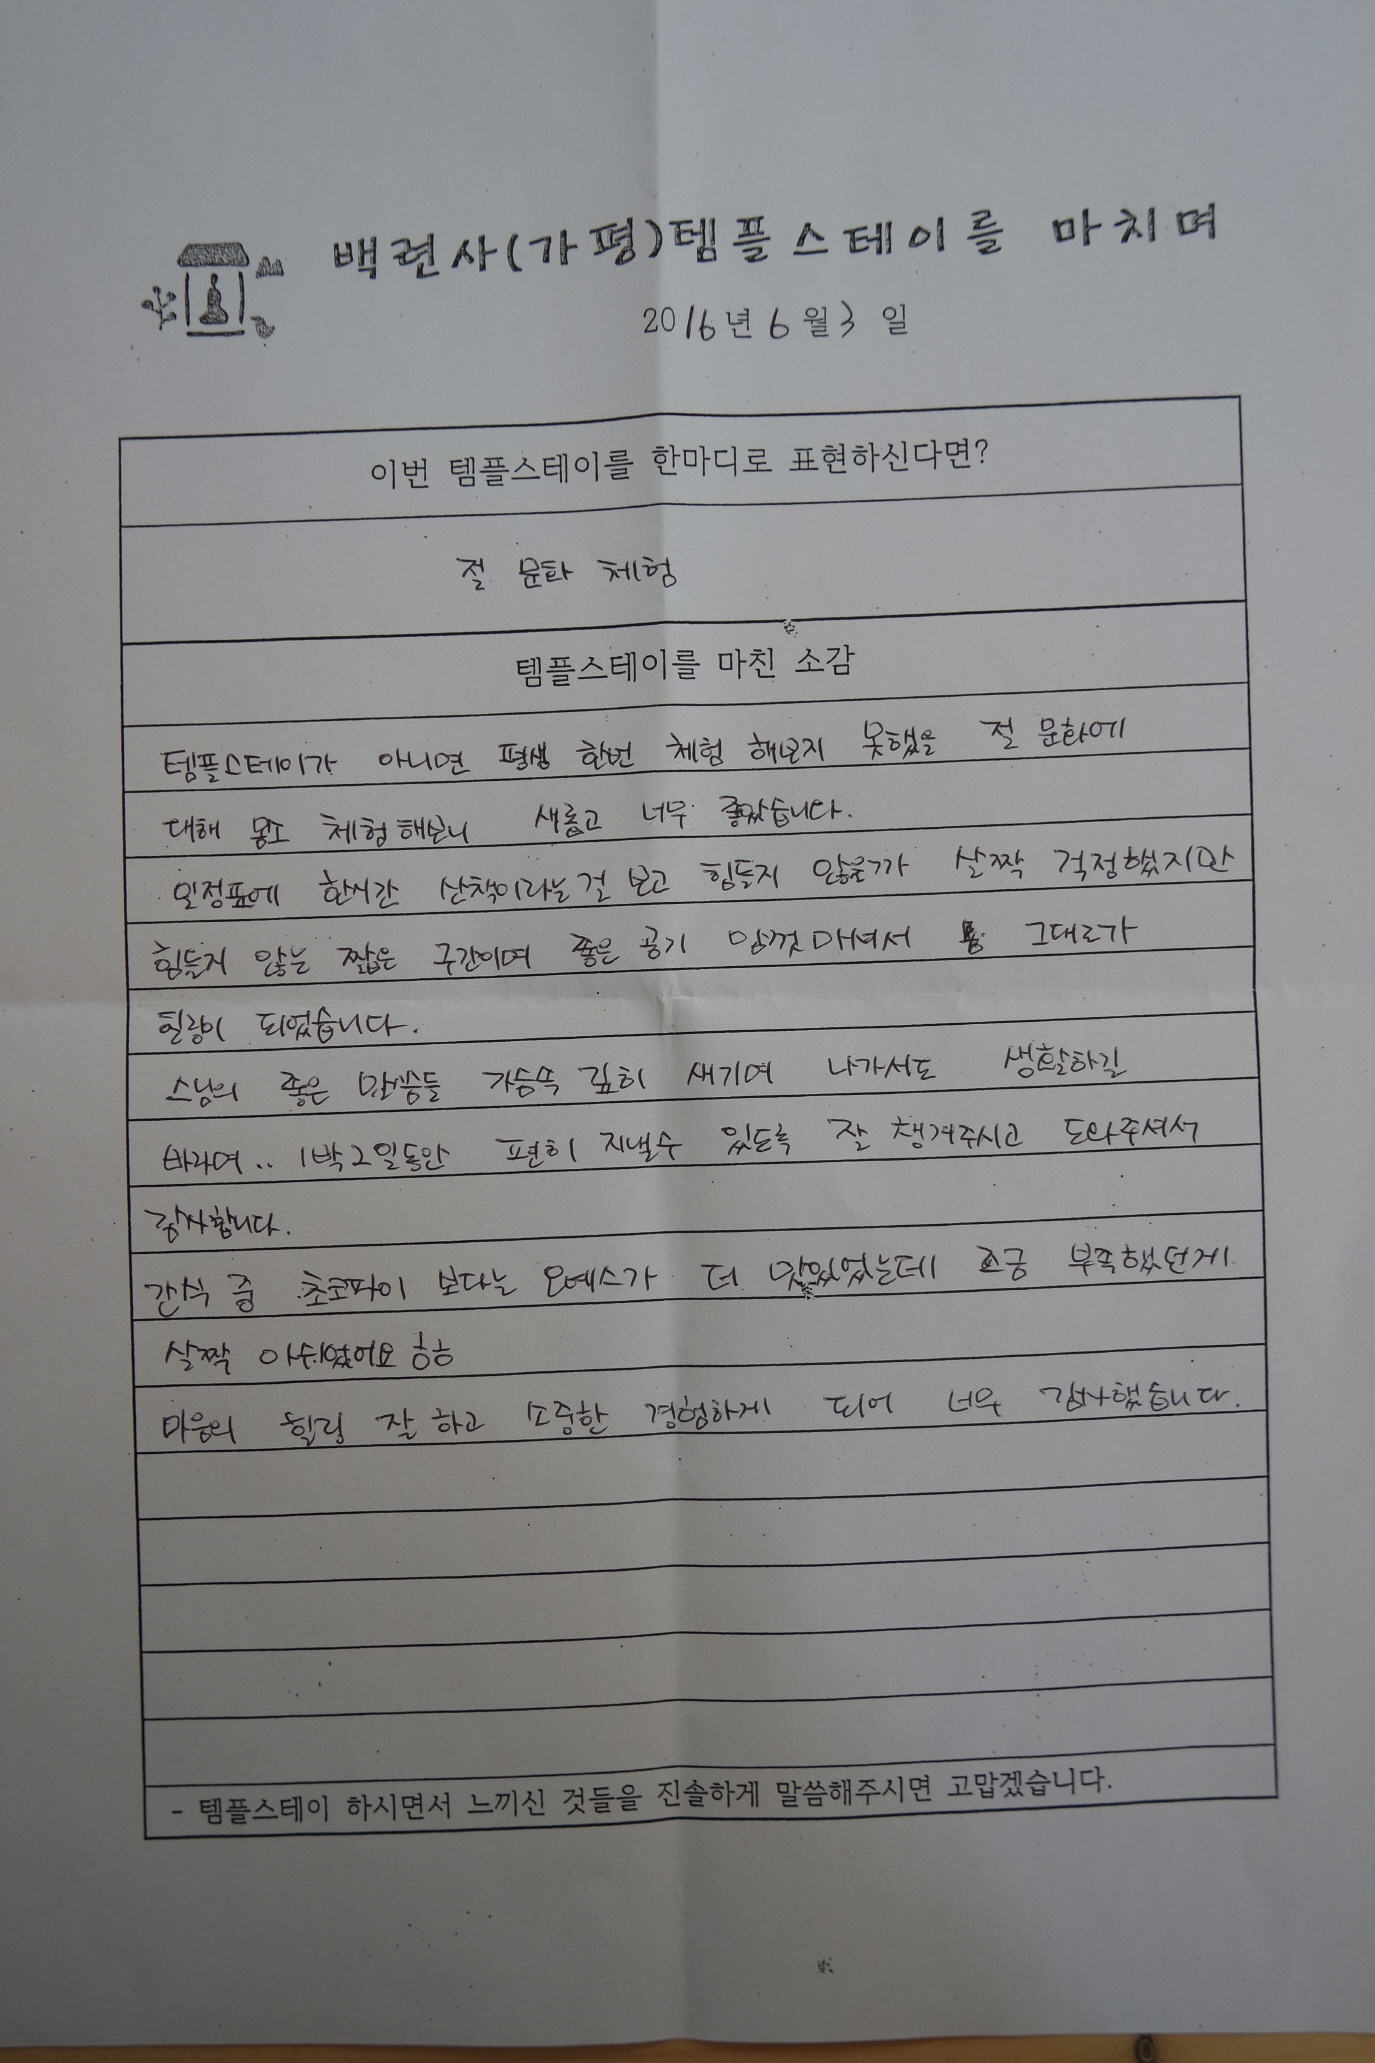 백련사(가평)템플스테이를 마치며
2016년 6월 3일
이번 템플스테이를 한마디로 표현하신다면?
절 문화 체험
템플스테이를 마친 소감
템플스테이가 아니면 평생 한번 체험 해보지 못했을 절 문화에
대해 몸소 체험해보니 새롭고 너무 좋았습니다.
일정표에 한시간 산책이라는걸 보고 힘들지 않을까 살짝 걱정했지만
힘들지 않는 짧은 구간이며 좋은 공기 맘껏 마셔서 몸 그대로가
힐링이 되었습니다.
스님의 좋은 말씀들 가슴속 깊히 새기며 나가서도 생활하길
바라며.. 1박2일동안 편히 지낼수 있도록 잘 챙겨주시고 도와주셔서
감사합니다.
간식 중 초코파이 보다는 오예스가 더 맛있었는데 조금 부족했던게
살짝 아쉬웠어요 ㅎㅎ
마음의 힐링 잘 하고 소중한 경험하게 되어 너무 감사했습니다.
- 템플스테이 하시면서 느끼신 것들을 진솔하게 말씀해주시면 고맙겠습니다.